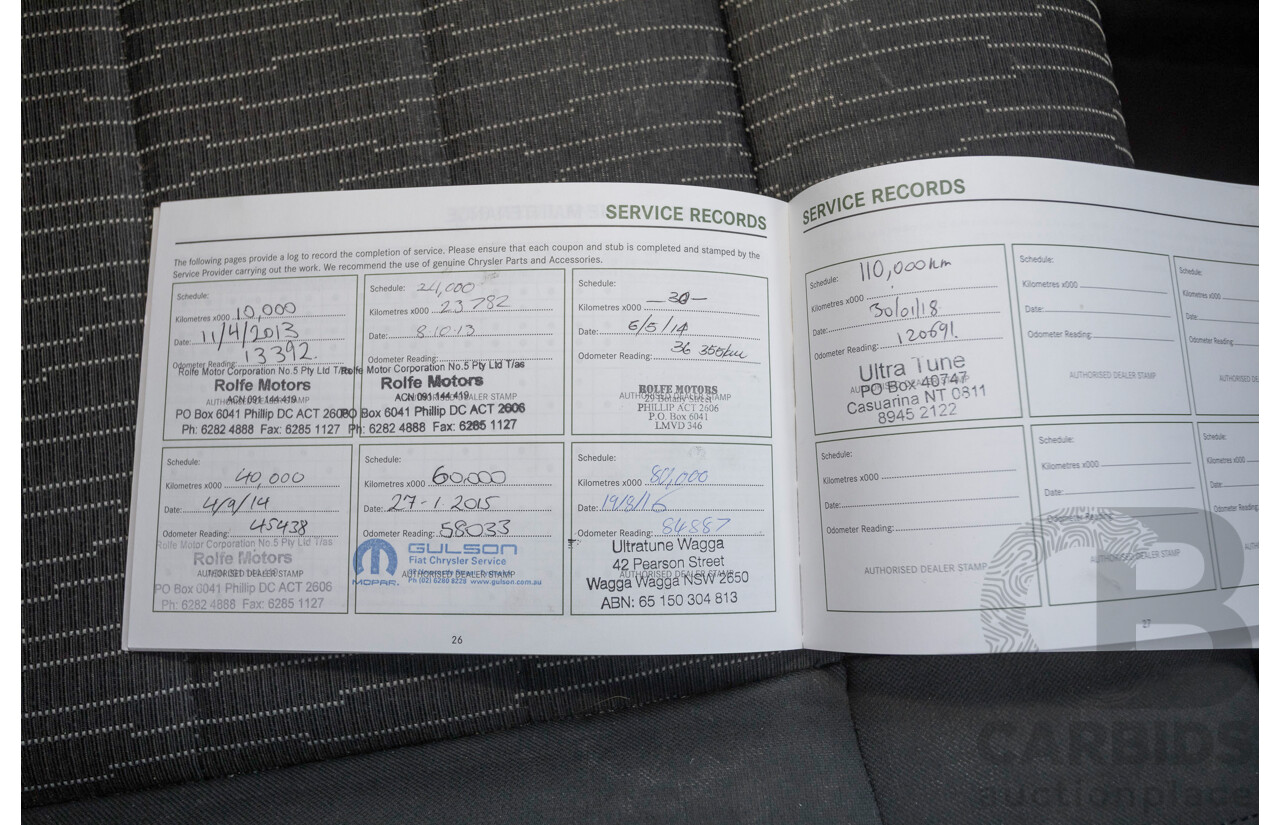 SERVICE RECORDS
The following pages provide a log to record the completion of service. Please ensure that each coupon and stub is completed and stamped by the
Service Provider carrying out the work. We recommend the use of genuine Chrysler Parts and Accessories.
Schedule:
Kilometres x000 10,000
Date: 11/4/2013
Odometer Reading: 13392.
Rolfe Motor Corporation No.5 Pty Ltd T/as
Rolfe Motors
AUTHORISED DEALER STAMP
ACN 091 144 419
PO Box 6041 Phillip DC ACT 2606
Ph: 6282 4888 Fax: 6285 1127
Schedule: 24,000
Kilometres x000 23782
Date: 8.10.13
Odometer Reading:
Rolfe Motor Corporation No.5 Pty Ltd T/as
Rolfe Motors
AUTHORISED DEALER STAMP
ACN 091 144 419
PO Box 6041 Phillip DC ACT 2606
Ph: 6282 4888 Fax: 6285 1127
Schedule:
Kilometres x000 -30-
Date: 6/5/14
Odometer Reading: 36 355km
ROLFE MOTORS
AUTHORISED DEALER STAMP
PHILLIP ACT 2606
P.O. Box 6041
LMVD 346
Schedule:
Kilometres x000 40,000
Date: 4/9/14
Odometer Reading: 45438
Rolfe Motor Corporation No.5 Pty Ltd T/as
Rolfe Motors
AUTHORISED DEALER STAMP
PO Box 6041 Phillip DC ACT 2606
Ph: 6282 4888 Fax: 6285 1127
Schedule:
Kilometres x000 60,000
Date: 27-1.2015
Odometer Reading: 58033
GULSON
Fiat Chrysler Service
AUTHORISED DEALER STAMP
MOPAR. Ph (02) 6280 8228 www.gulson.com.au
Schedule:
Kilometres x000 80,000
Date: 19/8/16
Odometer Reading: 84887
Ultratune Wagga
42 Pearson Street
AUTHORISED DEALER STAMP
Wagga Wagga NSW 2650
ABN: 65 150 304 813
26
SERVICE RECORDS
Schedule: 110,000km
Kilometres x000
Date: 30/01/18.
Odometer Reading: 120691.
Ultra Tune
AUTHORISED DEALER STAMP
PO Box 40747
Casuarina NT 0811
8945 2122
Schedule:
Kilometres x000
Date:
Odometer Reading:
AUTHORISED DEALER STAMP
Schedule:
Kilometres x000
Date:
Odometer Reading:
AUTHORISED DE
Schedule:
Kilometres x000
Date:
Odometer Reading:
AUTHORISED DEALER STAMP
Schedule:
Kilometres x000
Date:
Odometer Reading:
AUTHORISED DEALER STAMP
Schedule:
Kilometres x000
Date:
Odometer Reading:
27
CARBIDS
auctionplace